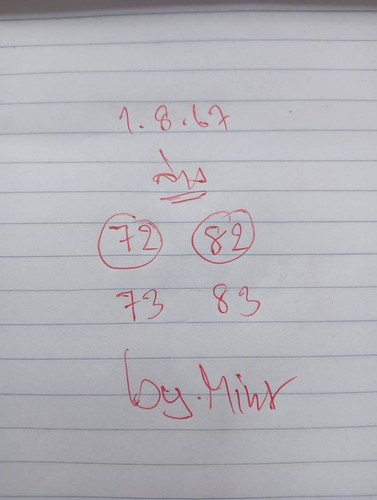 1.8.67
ล่าง
72 82
73 83
by.Mint